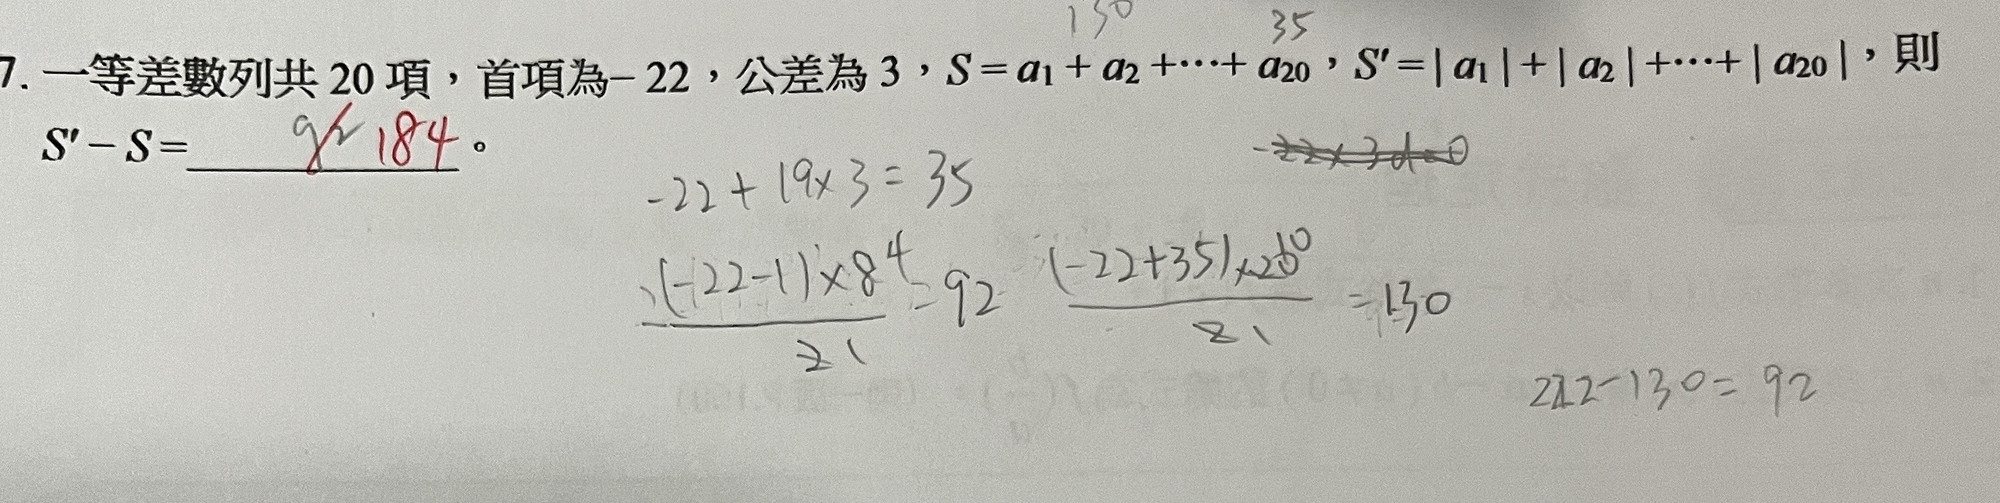 130 35
7. 一等差數列共 20 項，首項為–22，公差為 3，S=a1+a2+⋯+a20，S'=|a1|+|a2|+⋯+|a20|，則
S'–S= 92 184 。
-22x3d=0
-22+19x3=35
(-22-1)x8 4 (-22+35)x20 10
=92 =130
21 21
222-130=92